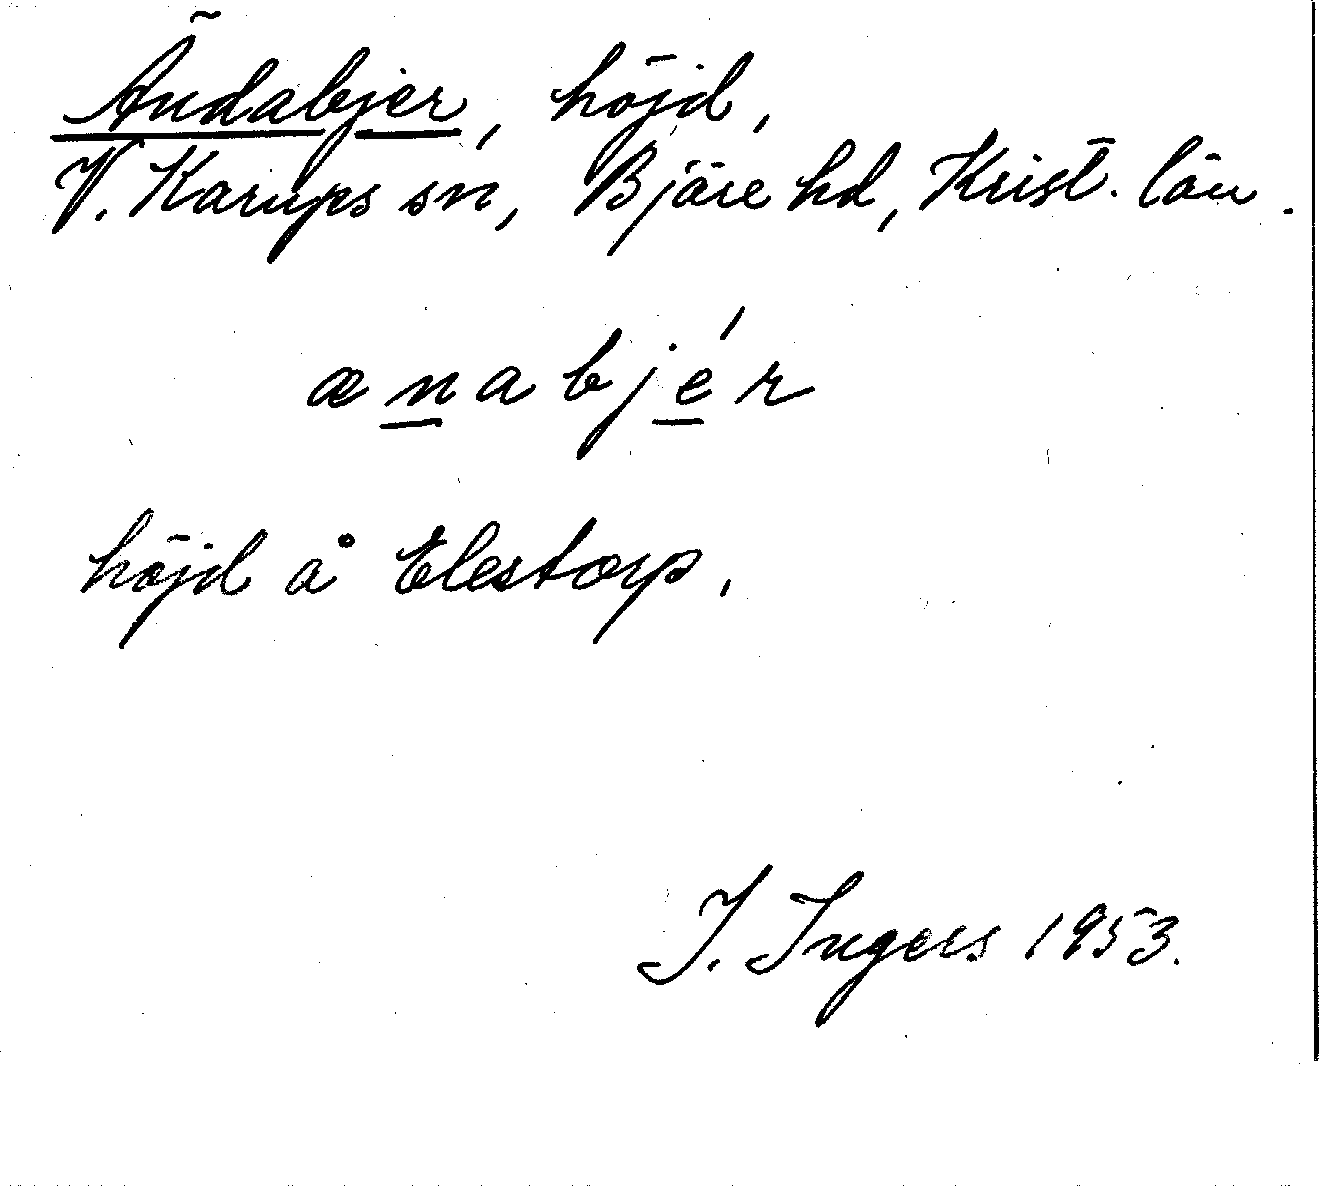 Ändabjer, höjd,
V. Karups sn, Bjäre hd, Krist. län.
ænabjér
höjd å Elestorp.
I. Ingers 1953.